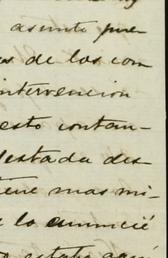 asunto que
s de las con
intervencion
esto contan-
estada des
tiene mas mi-
lo anuncié
estaba aqui